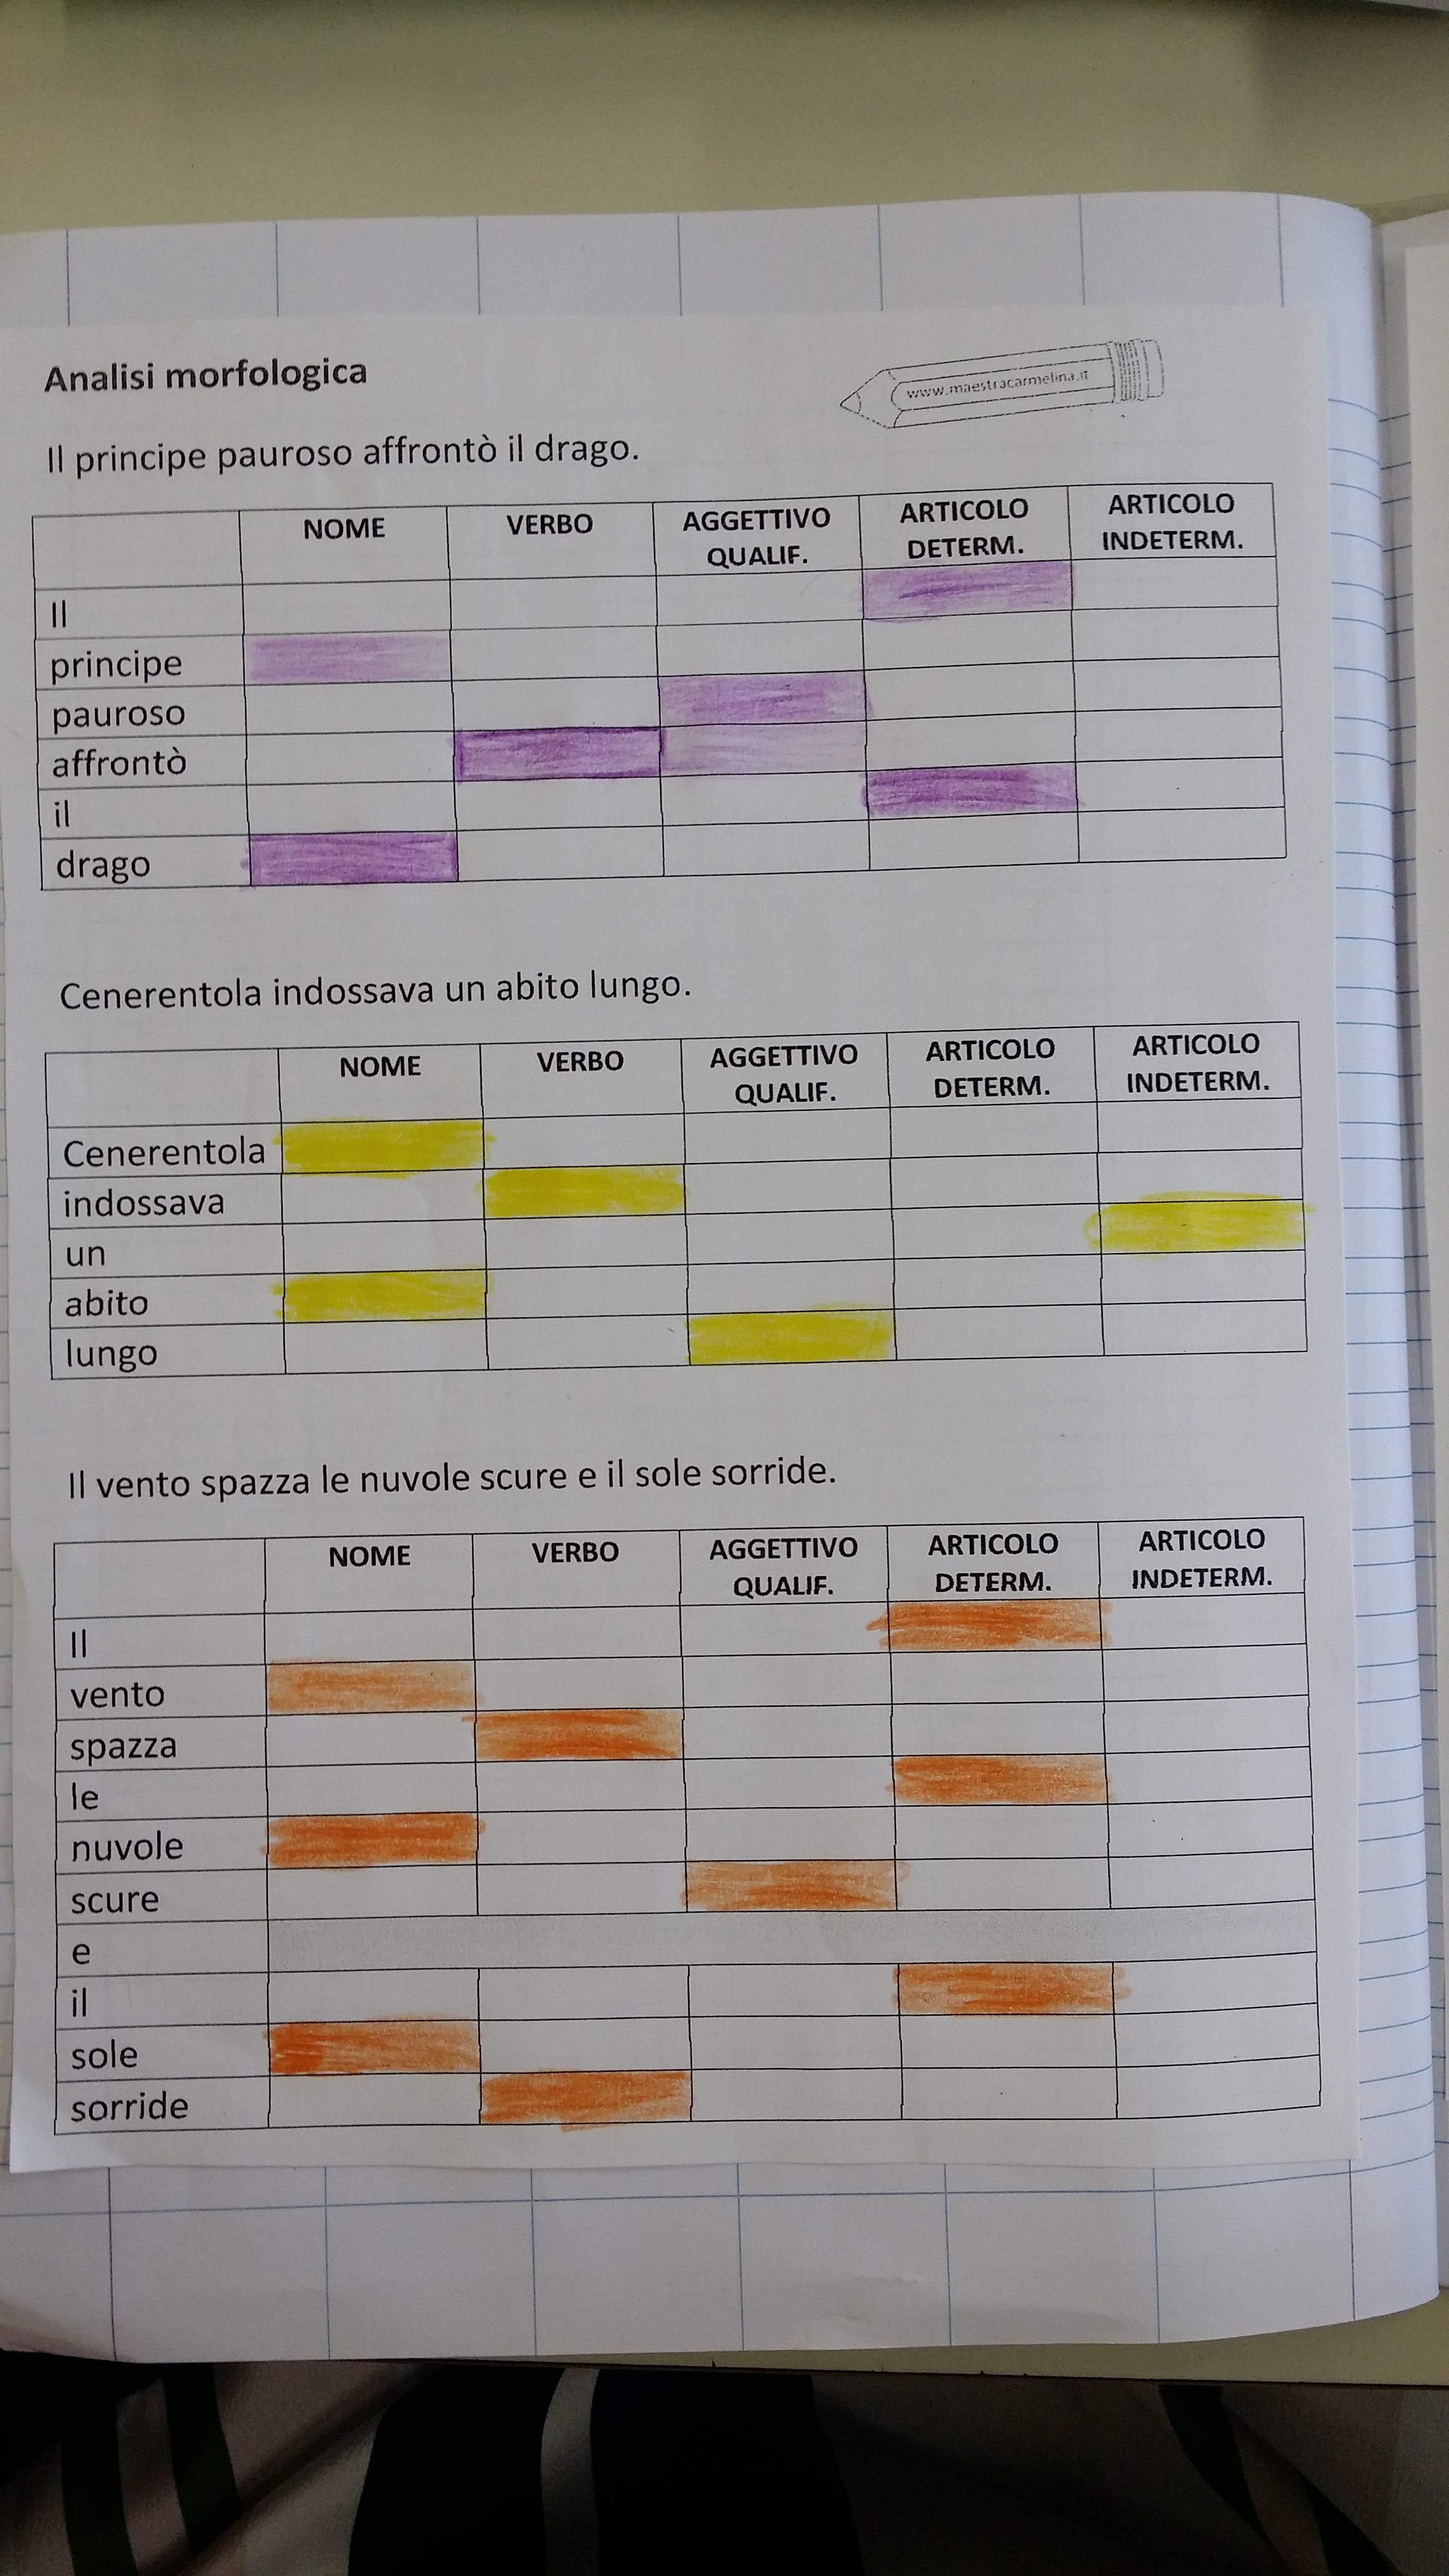 Analisi morfologica
www.maestracarmelina.it
Il principe pauroso affrontò il drago.
NOME VERBO AGGETTIVO QUALIF. ARTICOLO DETERM. ARTICOLO INDETERM.
Il
principe
pauroso
affrontò
il
drago
Cenerentola indossava un abito lungo.
NOME VERBO AGGETTIVO QUALIF. ARTICOLO DETERM. ARTICOLO INDETERM.
Cenerentola
indossava
un
abito
lungo
Il vento spazza le nuvole scure e il sole sorride.
NOME VERBO AGGETTIVO QUALIF. ARTICOLO DETERM. ARTICOLO INDETERM.
Il
vento
spazza
le
nuvole
scure
e
il
sole
sorride